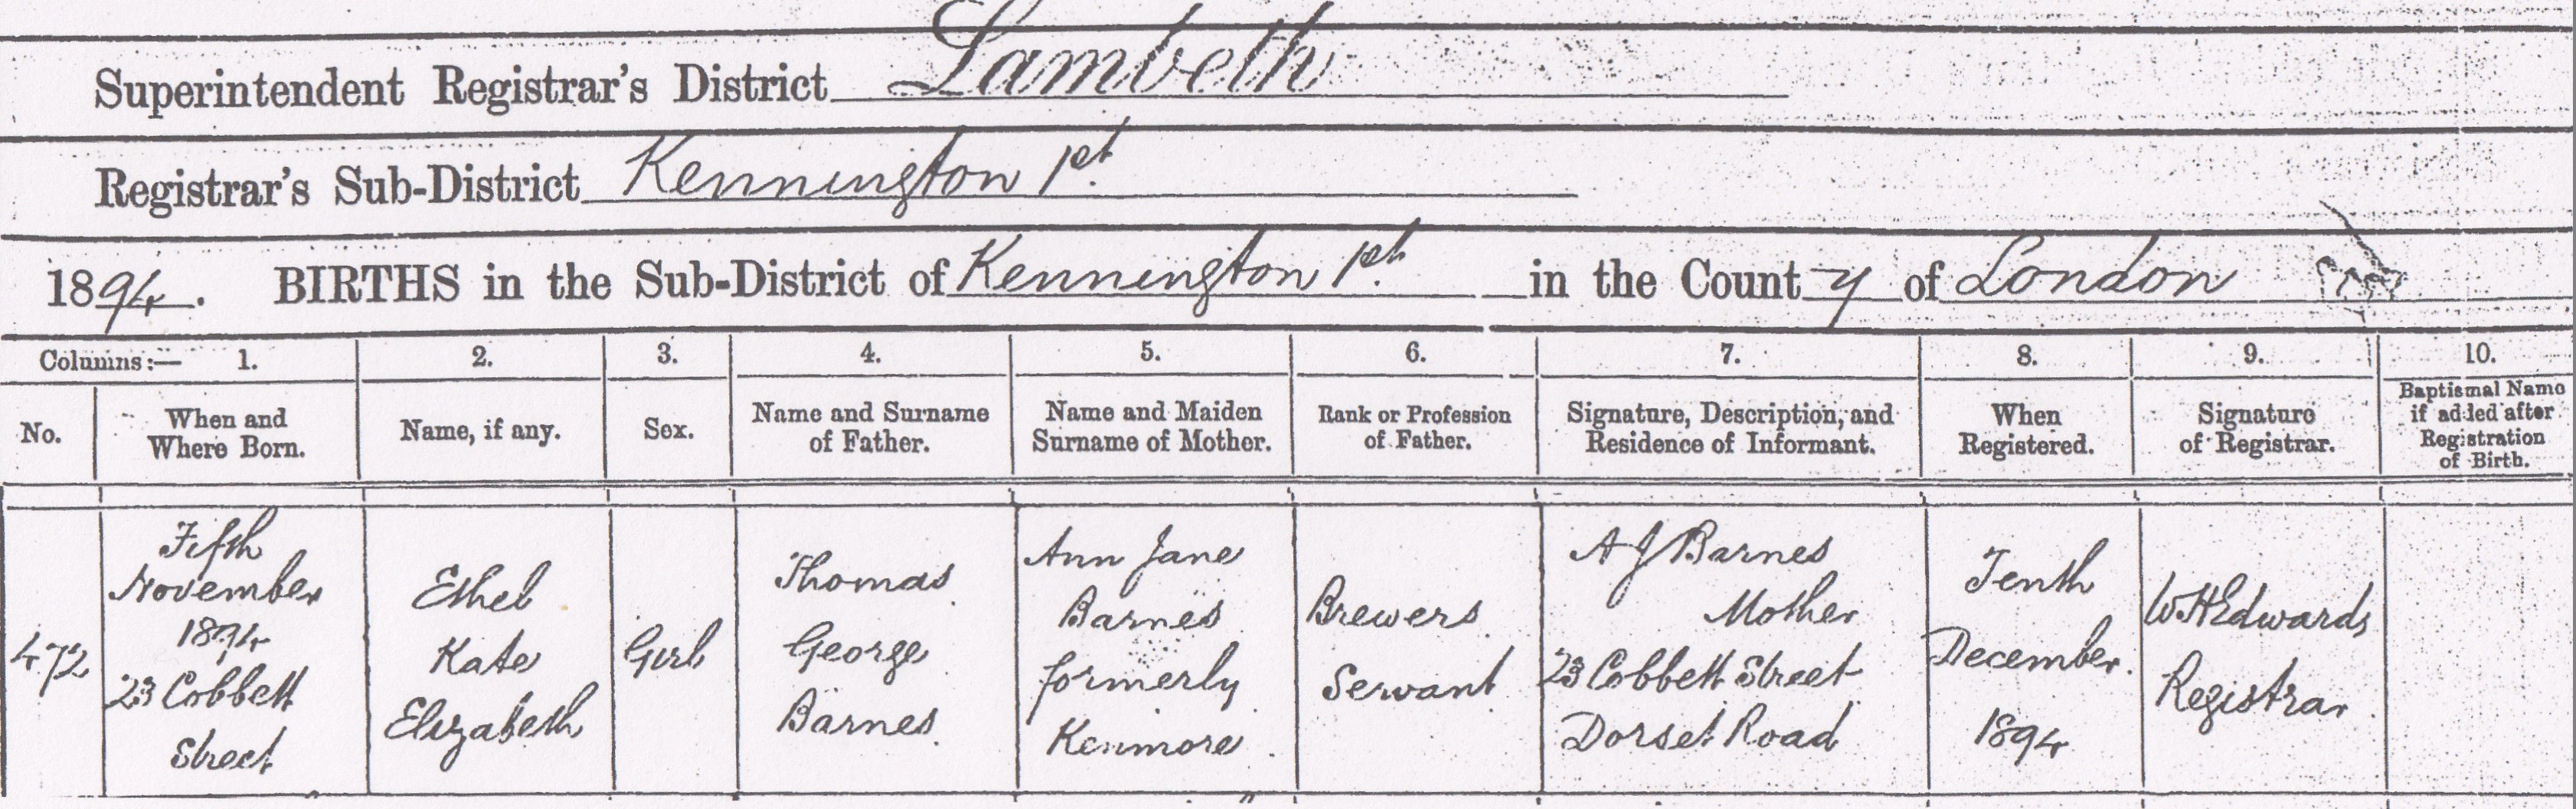 Superintendent Registrar's District Lambeth
Registrar's Sub-District Kennington 1st.
1894. BIRTHS in the Sub-District of Kennington 1st. in the County of London
Columns:— 1. 2. 3. 4. 5. 6. 7. 8. 9. 10.
No.
When and
Where Born.
Name, if any.
Sex.
Name and Surname
of Father.
Name and Maiden
Surname of Mother.
Rank or Profession
of Father.
Signature, Description, and
Residence of Informant.
When
Registered.
Signature
of Registrar.
Baptismal Name
if added after
Registration
of Birth.
472
Fifth
November
1894
23 Cobbett
Street
Ethel
Kate
Elizabeth
Girl
Thomas
George
Barnes
Ann Jane
Barnes
formerly
Kenmore
Brewers
Servant
A J Barnes
Mother
23 Cobbett Street
Dorset Road
Tenth
December
1894
W H Edwards
Registrar